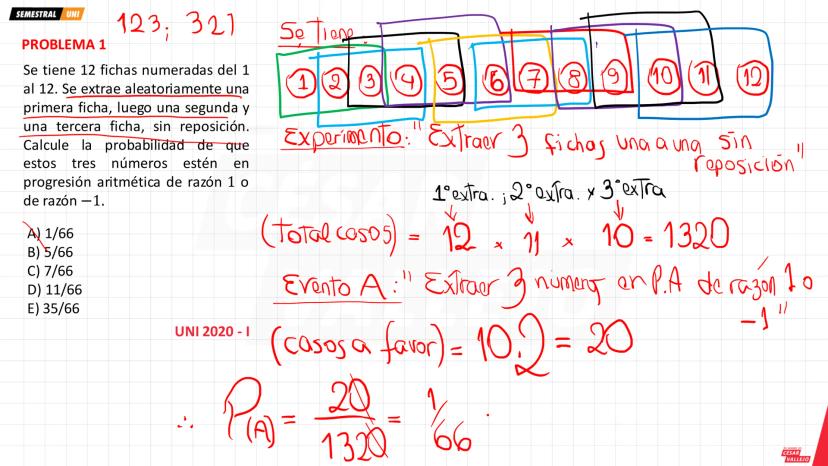 SEMESTRAL UNI
123; 321
PROBLEMA 1
Se tiene 12 fichas numeradas del 1
al 12. Se extrae aleatoriamente una
primera ficha, luego una segunda y
una tercera ficha, sin reposición.
Calcule la probabilidad de que
estos tres números estén en
progresión aritmética de razón 1 o
de razón −1.
A) 1/66
B) 5/66
C) 7/66
D) 11/66
E) 35/66
UNI 2020 - I
Se Tiene.
1 2 3 4 5 6 7 8 9 10 11 12
Experimento: "Extraer 3 fichas una a una sin
reposición"
1° extra. ; 2° extra. x 3° extra
(Total casos) = 12 x 11 x 10 = 1320
Evento A: " Extraer 3 números en P.A de razón 1 o
-1"
(casos a favor) = 10.2 = 20
∴ P(A) = 20/1320 = 1/66 .
CESAR
VALLEJO